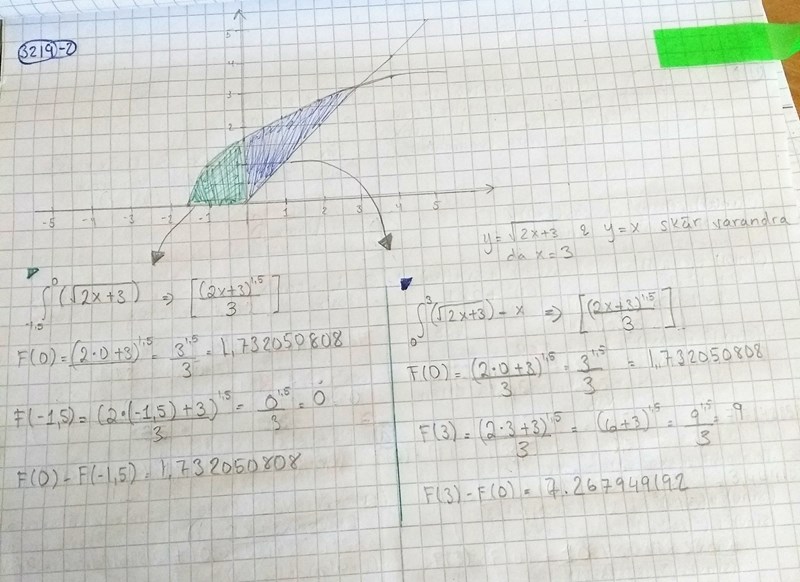 3219-2
5
4
3
2
-5 -4 -3 -2 -1 1 2 3 4 5
y = √2x+3 & y = x skär varandra
då x = 3
∫₋₁,₅⁰ (√2x+3) ⇒ [(2x+3)^1,5 / 3]
F(0) = (2·0+3)^1,5 / 3 = 3^1,5 / 3 = 1,732050808
F(-1,5) = (2·(-1,5)+3)^1,5 / 3 = 0^1,5 / 3 = 0
F(0) - F(-1,5) = 1,732050808
∫₀³ (√2x+3) - x ⇒ [(2x+3)^1,5 / 3]
F(0) = (2·0+3)^1,5 / 3 = 3^1,5 / 3 = 1,732050808
F(3) = (2·3+3)^1,5 / 3 = (6+3)^1,5 = 9^1,5 / 3 = 9
F(3) - F(0) = 7.267949192